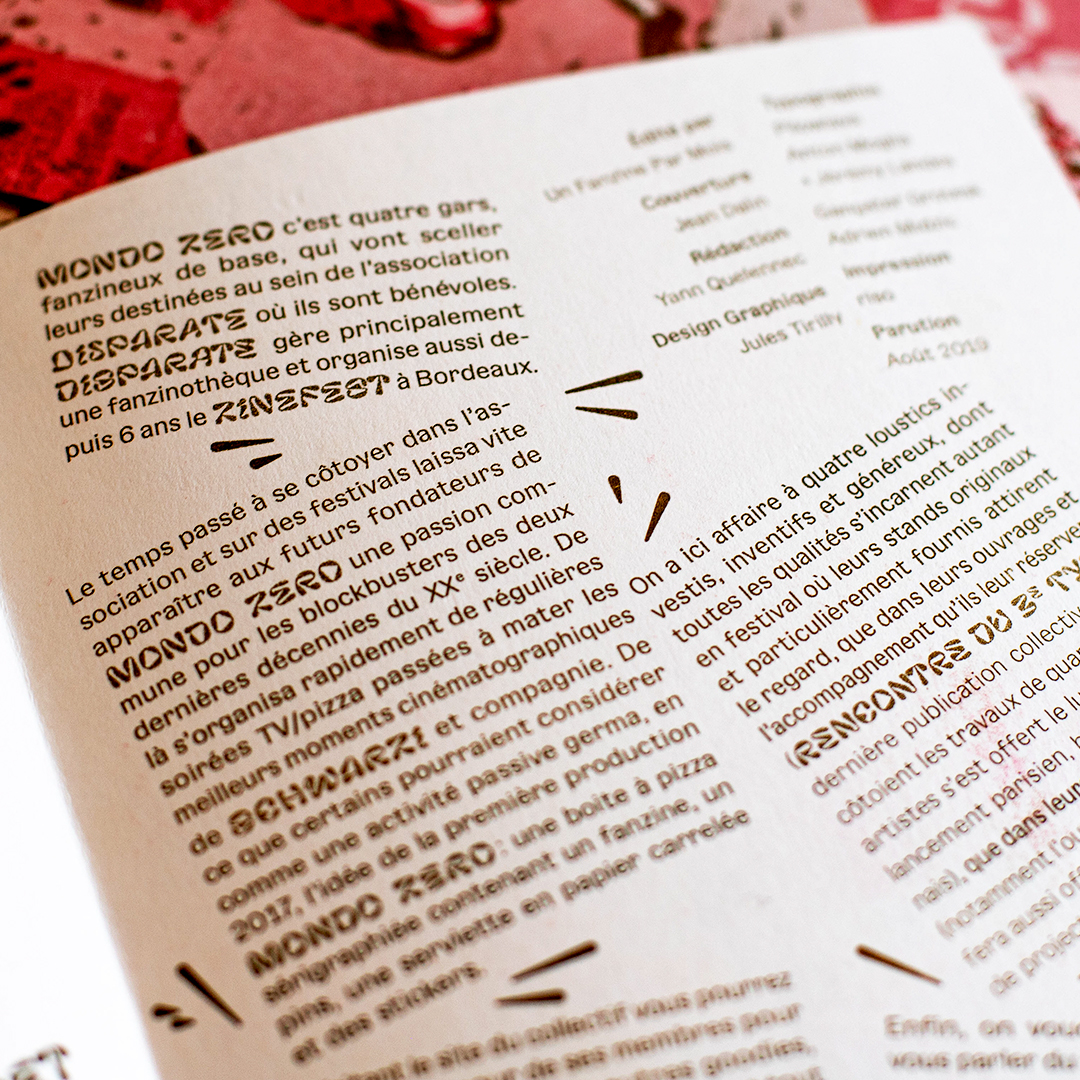 MONDO ZERO c'est quatre gars,
fanzineux de base, qui vont sceller
leurs destinées au sein de l'association
DISPARATE où ils sont bénévoles.
DISPARATE gère principalement
une fanzinothèque et organise aussi de-
puis 6 ans le ZINEFEST à Bordeaux.
Le temps passé à se côtoyer dans l'as-
sociation et sur des festivals laissa vite
apparaître aux futurs fondateurs de
MONDO ZERO une passion com-
mune pour les blockbusters des deux
dernières décennies du XXe siècle. De
là s'organisa rapidement de régulières
soirées TV/pizza passées à mater les
meilleurs moments cinématographiques
de SCHWARZI et compagnie. De
ce que certains pourraient considérer
comme une activité passive germa, en
2017, l'idée de la première production
MONDO ZERO: une boite à pizza
sérigraphiée contenant un fanzine, un
pins, une serviette en papier carrelée
et des stickers.
tant le site du collectif vous pourrez
de ses membres pour
goodies,
Édité par
Un Fanzine Par Mois
Couverture
Jean Dalin
Rédaction
Yann Quelennec
Design Graphique
Jules Tirilly
Typographie
Adrien
Impression
riso
Parution
Août 2019
On a ici affaire à quatre loustics in-
vestis, inventifs et généreux, dont
toutes les qualités s'incarnent autant
en festival où leurs stands originaux
et particulièrement fournis attirent
le regard, que dans leurs ouvrages et
l'accompagnement qu'ils leur réserve
(RENCONTRE DU 3e TY
dernière publication collectiv
côtoient les travaux de qua
artistes s'est offert le
lancement parisien,
nais), que dans leur
(notamment l'ou
fera aussi of
de proje
Enfin, on vou
vous parler du